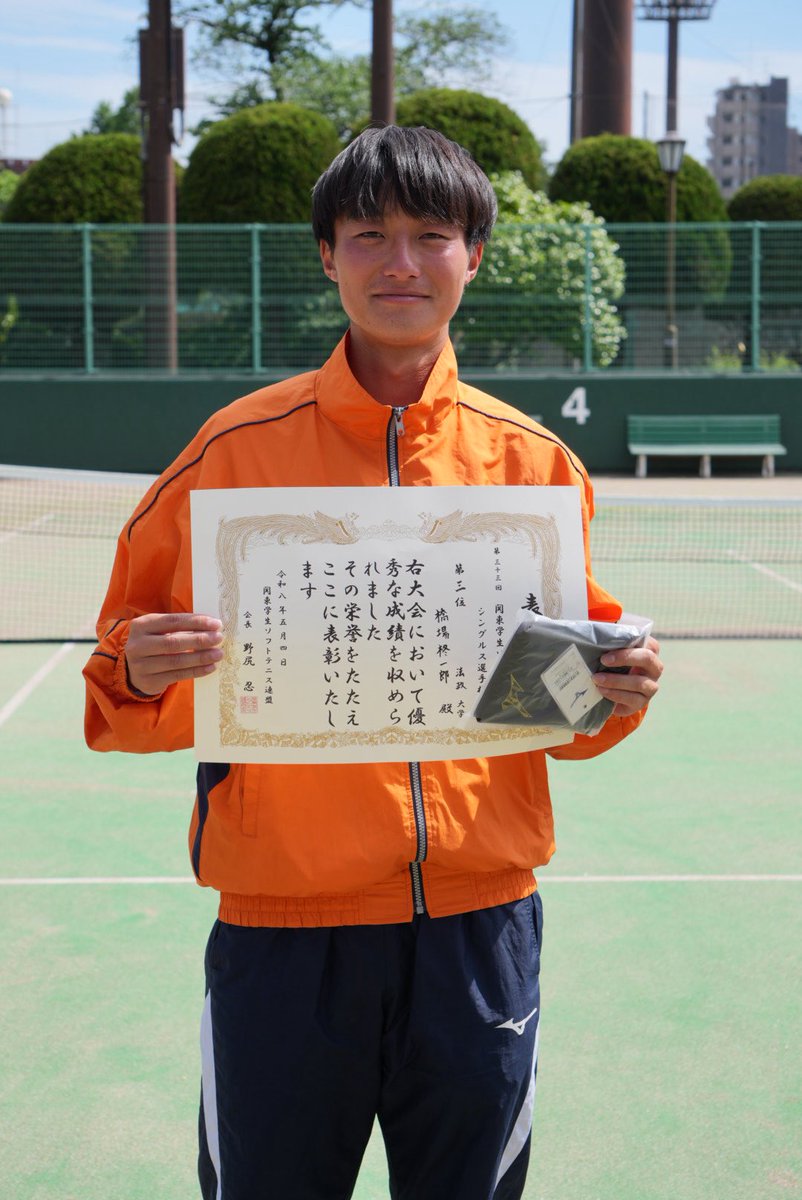 表
第三十三回 関東学生
シングルス選手
第三位 法政大学
橋場柊一郎 殿
右大会において優
秀な成績を収めら
れました
その栄誉をたたえ
ここに表彰いたし
ます
令和八年五月四日
関東学生ソフトテニス連盟
会長 野尻 忍
4